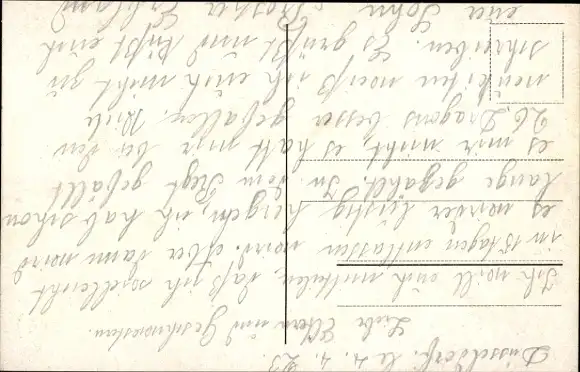 Düsseldorf. le 4. 4. 23.
Liebe Eltern und Geschwestern.
Ich will euch mitteilen, daß ich vielleicht
in 15 tagen entlassen wird. Aber dann wird
es wieder lustig hergehn, ich hab schon
lange gezählt. In dem Regt gefällt
es mir nicht, es hatt mir bei den
26. Dragons besser gefallen. Viele
neukiten weiß ich euch nicht zu
schreiben. Es grüßt und küßt euch
euer Sohn